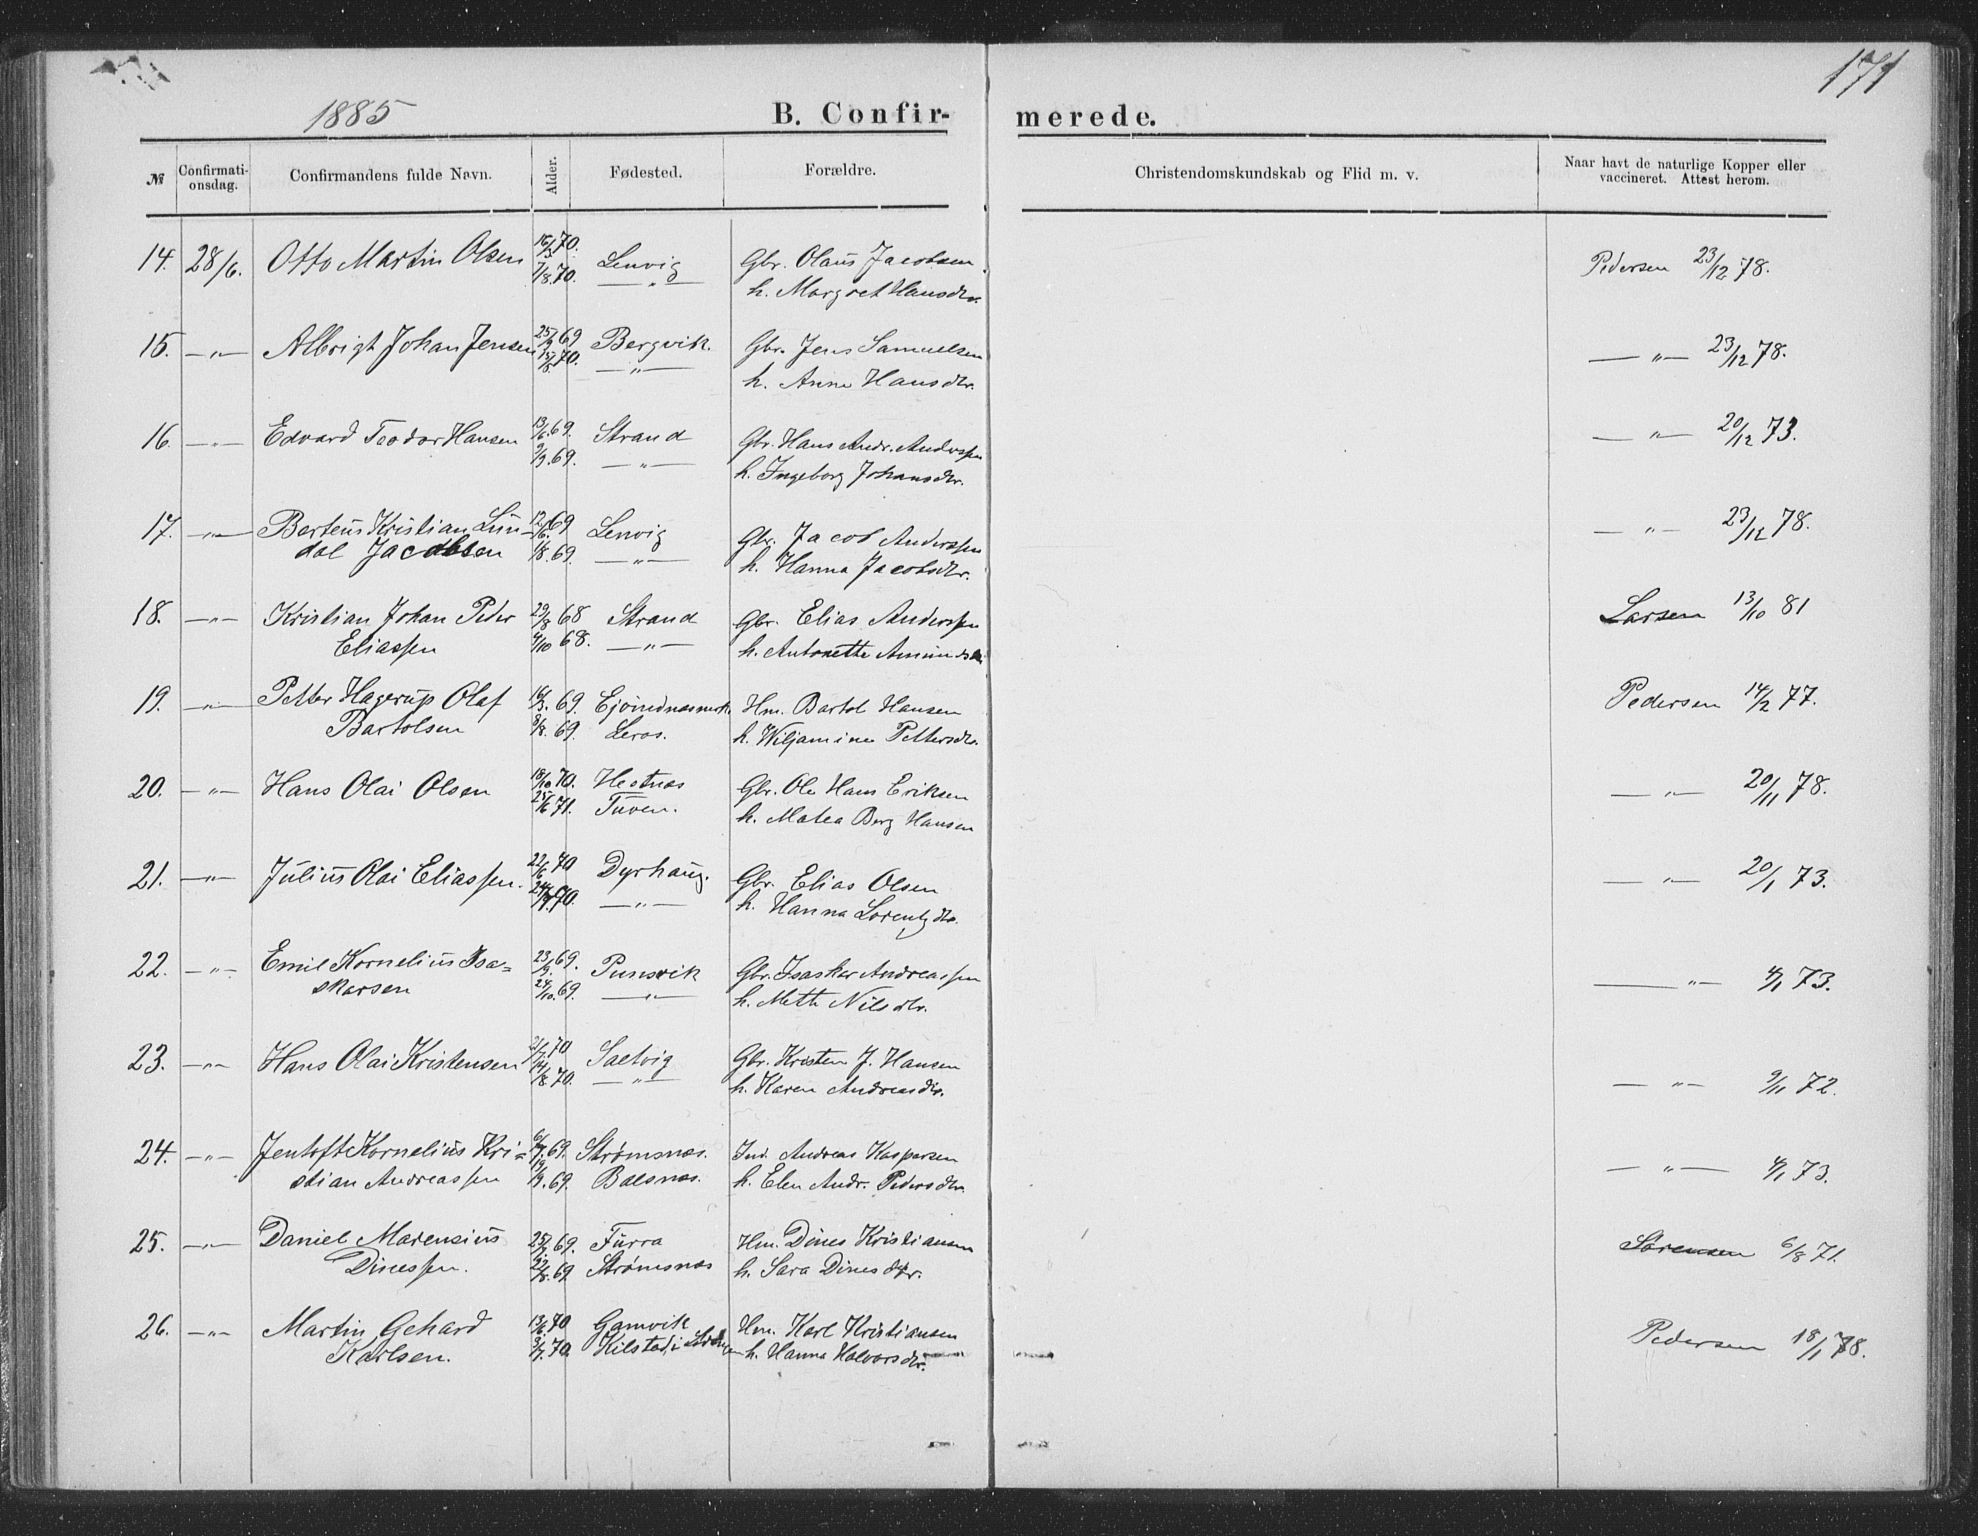 1885
171
B. Confirmerede.
№ Confirmationsdag. Confirmandens fulde Navn. Alder. Fødested. Forældre. Christendomskundskab og Flid m. v. Naar havt de naturlige Kopper eller vaccineret. Attest herom.
14. 28/6. Otto Martin Olsen 16/3 70. Lenvig Gbr. Olaus Jacobsen Pedersen 23/12 78.
7/8. 70. —"— h. Margret Hansdtr.
15. —"— Albrigt Johan Jensen 69 Bergvik. Gbr. Jens Samuelsen —"— 23/12 78.
70. —"— h. Anne Hansdtr.
16. —"— Edvard Teodor Hansen 13/6. 69. Strand Gbr. Hans Andr. Anderssen —"— 20/12 73.
9/9. 69. —"— h. Ingeborg Johansdtr.
17. —"— Berteus Kristian Lun- 12/6. 69 Lenvig Gbr. Jacob Anderssen —"— 23/12 78.
dal Jacobsen 1/8. 69. —"— h. Hanna Jacobsdtr.
18. —"— Kristian Johan Peder 29/8 68 Strand Gbr. Elias Anderssen Larsen 13/10 81
Eliassen 4/10 68. —"— h. Antonette
19. —"— Petter Hagerup Olaf 16/3. 69. Hm. Bartol Hansen Pedersen 14/2 77.
Bartolsen 8/8. 69. Leros. h. Wiljamine Pettersdtr.
20. —"— Hans Olai Olsen 18/10 70. Hestnæs Gbr. Ole Hans Eriksen —"— 20/11 78.
25/6 71. Tuven. h. Matea Berg Hansen
21. —"— Julius Olai Eliassen. 22/6 70 Dyrhaug. Gbr. Elias Olsen —"— 20/1 73.
70. —"— h. Hanna Lorentzdtr.
22. —"— Emil Kornelius Isa= 23/9. 69. Punsvik Gbr. Isaskar Andreassen —"— 4/1 73.
skarsen 24/10. 69. —"— h. Mette Nilsdtr.
23. —"— Hans Olai Kristensen 70 Saltvig Gbr. Kristen J. Hansen —"— 9/11 72.
14/8. 70. —"— h. Karen Andreasdtr.
24. —"— Jentoft Kornelius Kri= 6/7. 69. Strømsnæs. Ind. Andreas Kaspersen —"— 4/1 73.
stian Andreassen 19/9. 69. Balsnæs. h. Elen Andr. Pedersdtr.
25. —"— Daniel Marensius 69. Furra Hm. Dines Kristiansen Sørensen 6/8 71.
Dinessen. 22/8. 69 Strømsnæs h. Sara Dinesdtr.
26. —"— Martin Gehard 13/6. 70 Gamvik Hm. Karl Kristiansen Pedersen 18/1 78.
Karlsen. 3/7. 70. Kilstad i h. Hanna Halvorsdtr.